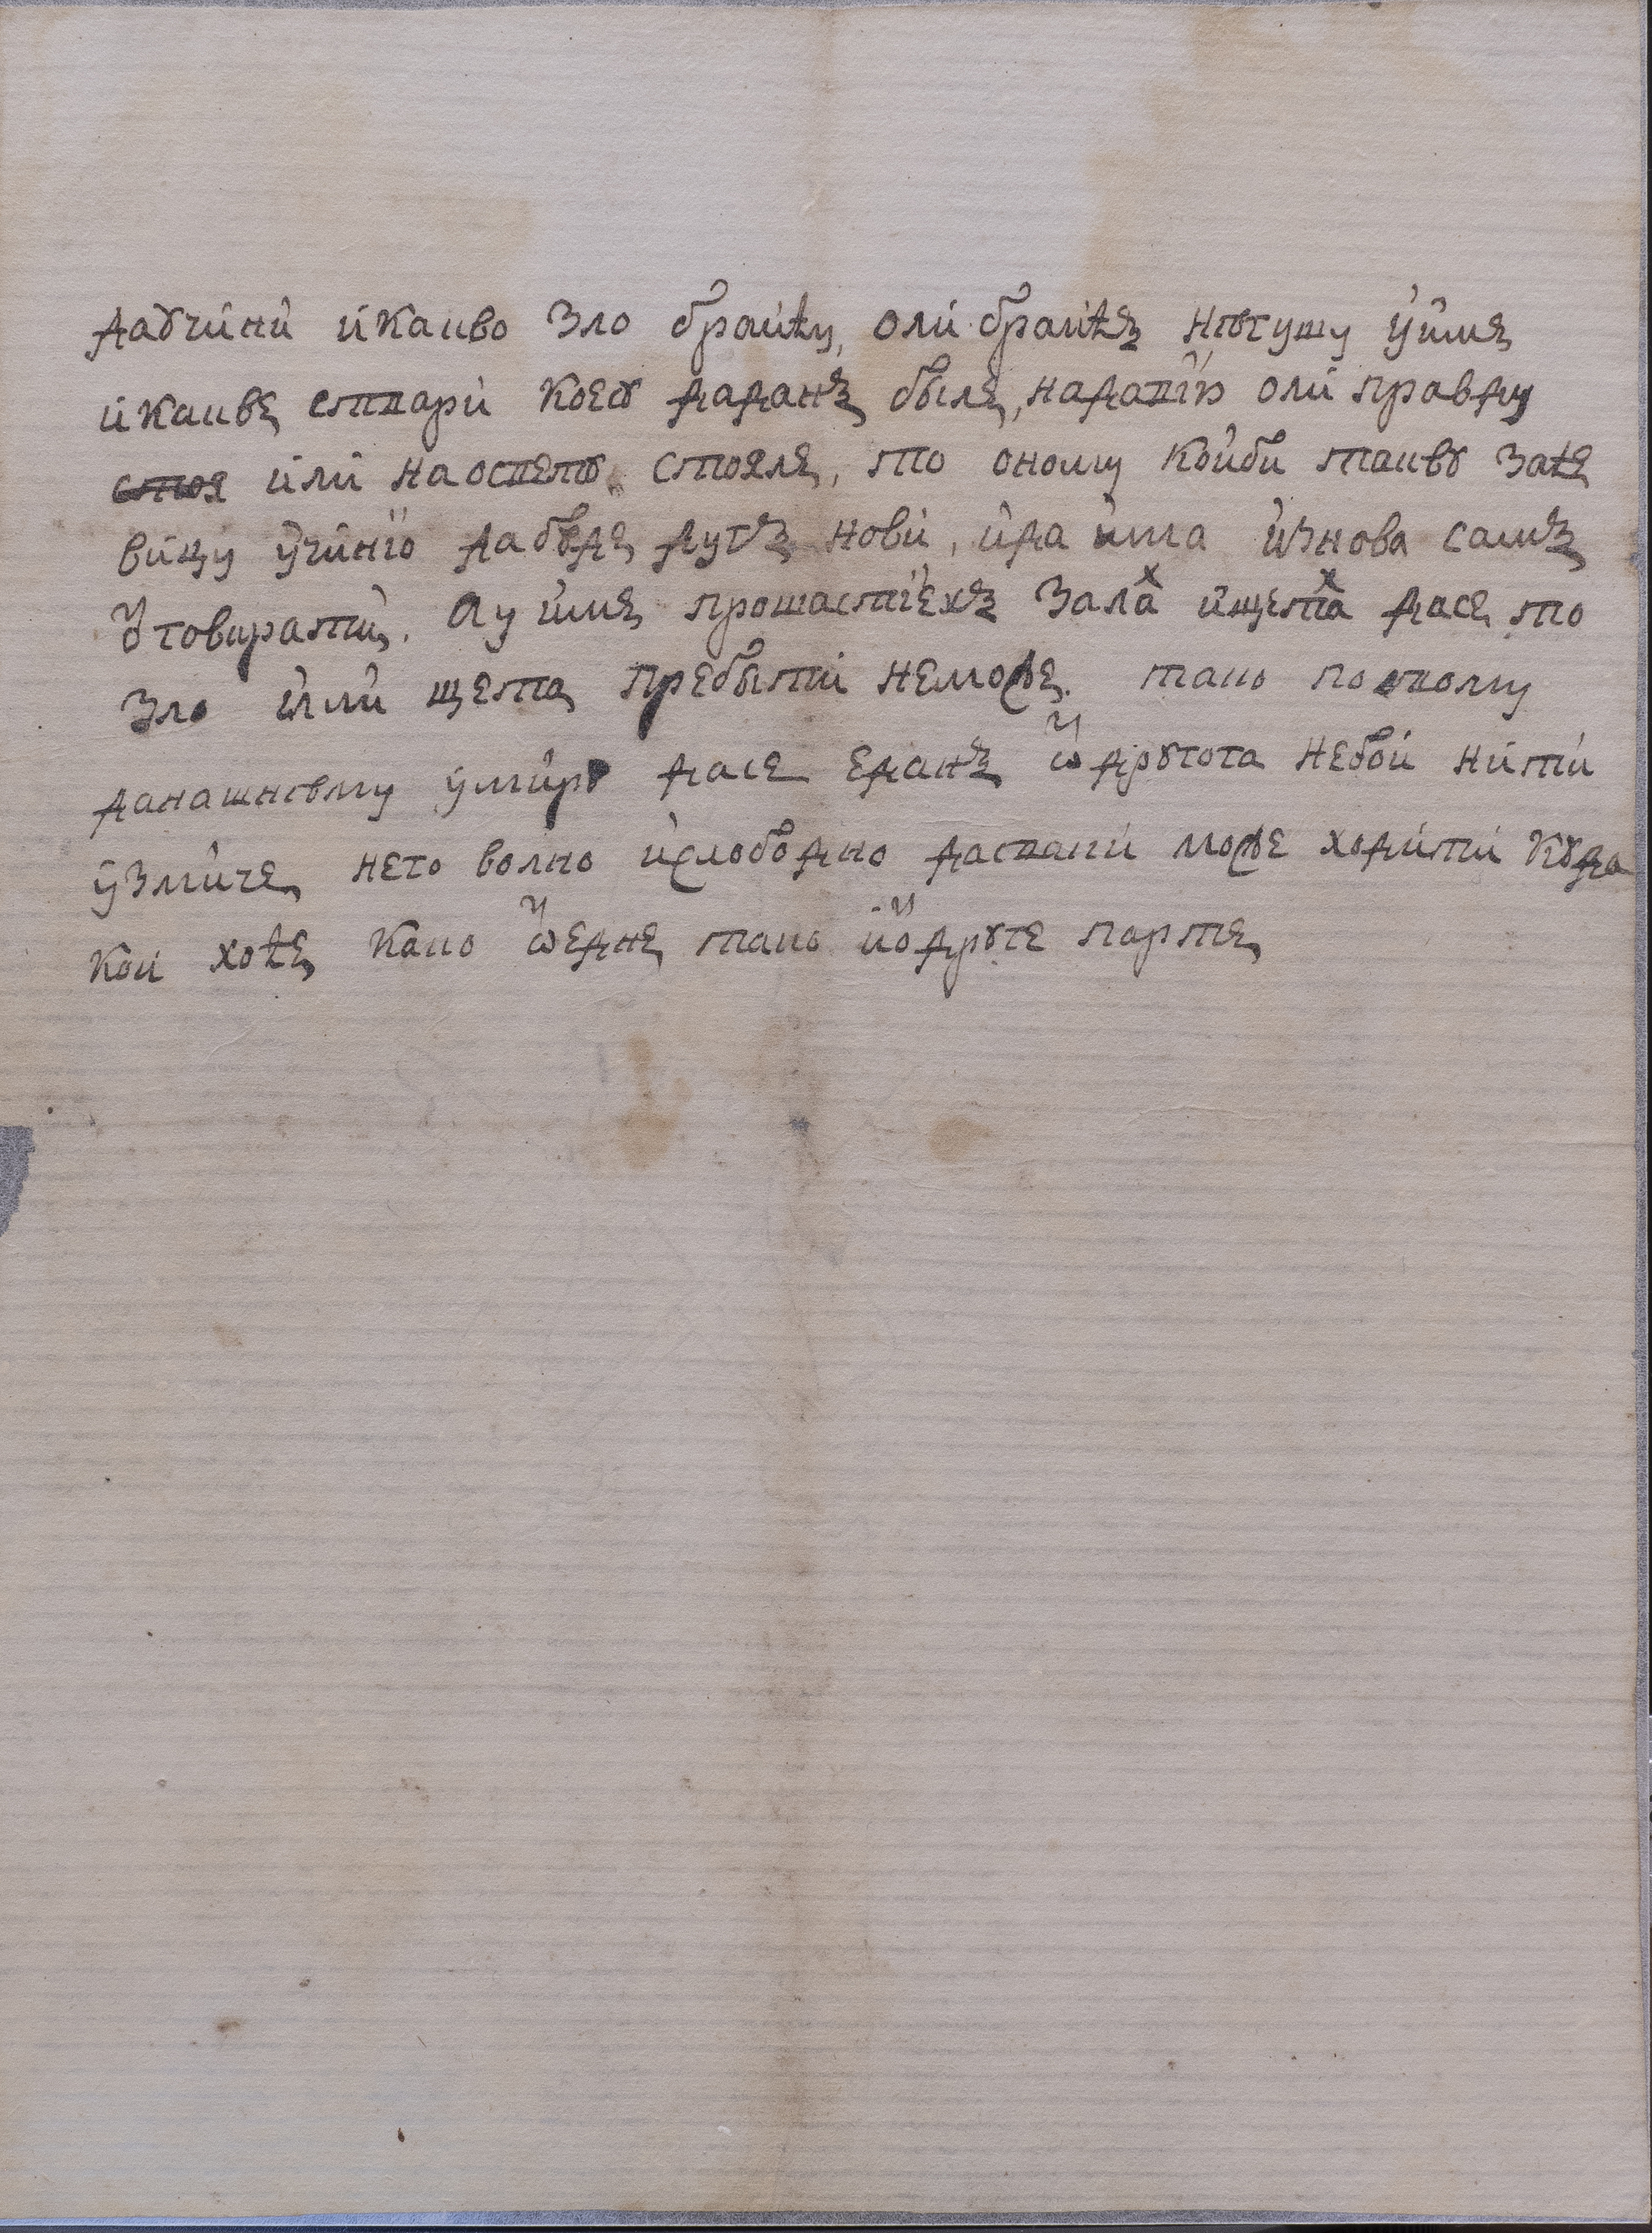 даꙋчини икакво Зло браићу, оли браићъ нѣгушу у̓име
икакве стари коеꙋ даданъ быле, надапію оли правду
стоя или на оспетꙋ стояле, то оному коиби таквꙋ заће
вицу учиніо дабꙋде дугъ нови, ида има изнова самъ
ѿговарати. Ау име прошастіехъ Залах ищетах дасе то
Зло или щета пребыти неможе. тако по оному
данашнѣму умиру дасе еданъ ѿ дрꙋгога небои нити
узмиче, него волно ислободно дасваки може ходити кꙋда
кои хоће како ѿедне тако иѿдрꙋге парте